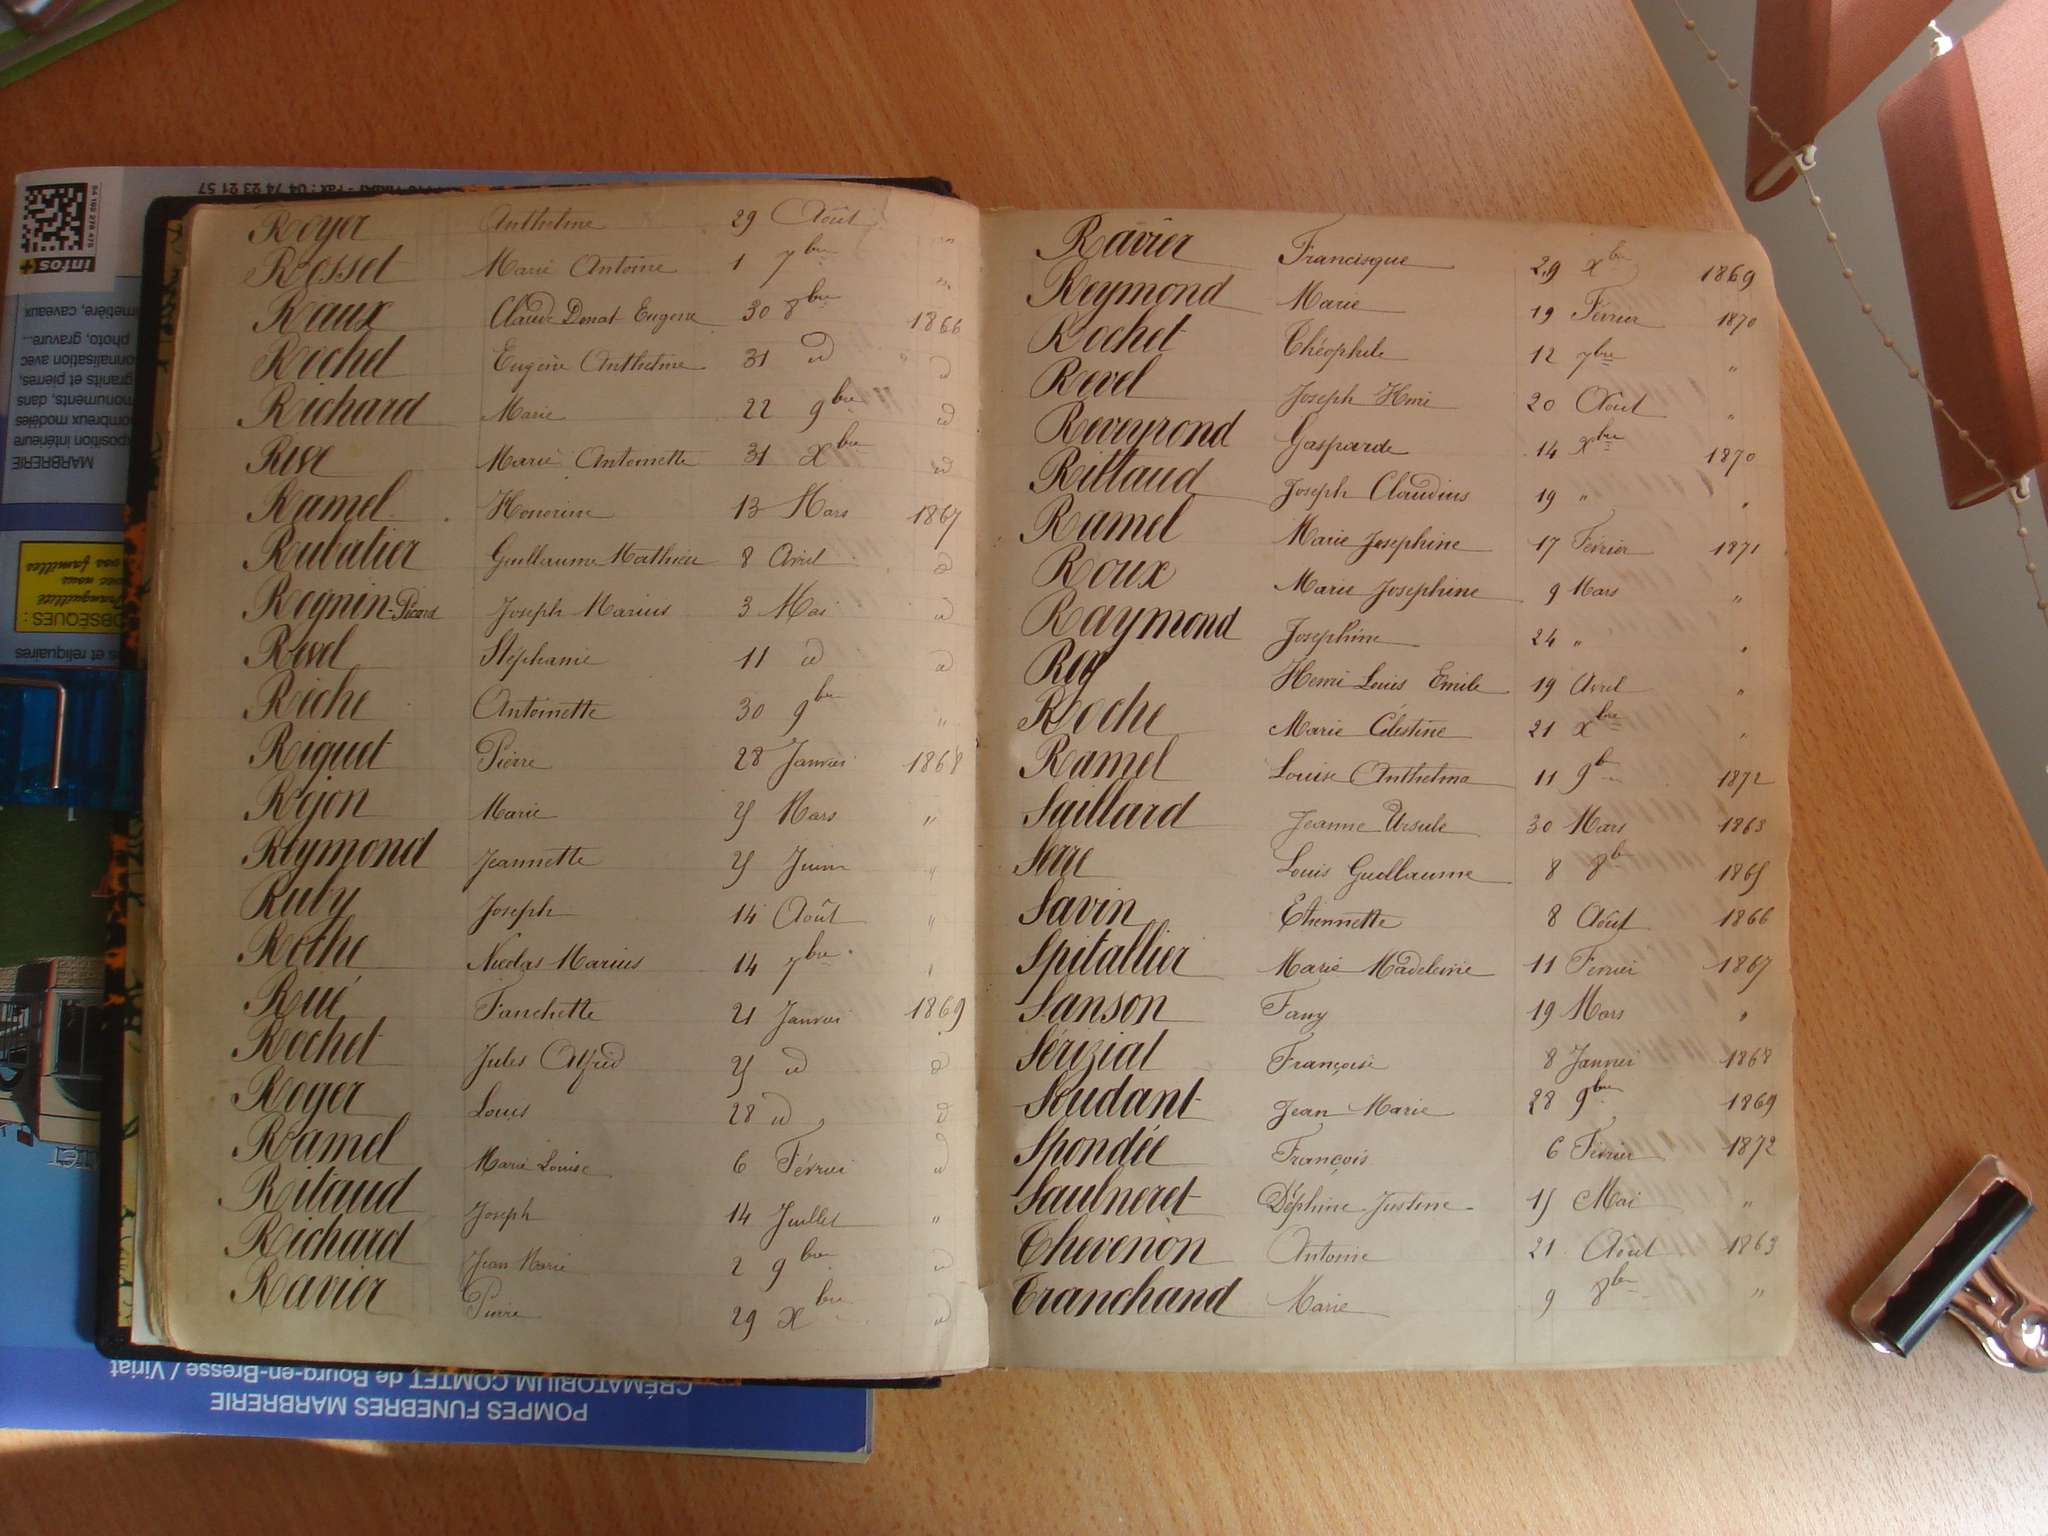 Royer Anthelme 29 Août "
Rosset Marie Antoine 1 7bre "
Raux Claude Donat Eugene 30 8bre 1866
Rochet Eugène Anthelme 31 id id
Richard Marie 22 9bre id
Rive Marie Antoinette 31 Xbre id
Ramel Honorine 13 Mars 1867
Rubatier Guillaume Mathieu 8 Avril id
Reynin-Picard Joseph Marius 3 Mai id
Revel Stéphanie 11 id id
Riche Antoinette 30 9bre "
Riquet Pierre 28 Janvier 1868
Rojon Marie 25 Mars "
Reymond Jeannette 25 Juin "
Ruby Joseph 14 Août "
Roche Nicolas Marius 14 7bre "
Rué Fanchette 21 Janvier 1869
Rochet Jules Alfred 25 id id
Royer Louis 28 id id
Ramel Marie Louise 6 Février id
Ritaud Joseph 14 Juillet "
Richard Jean Marie 2 9bre id
Ravier Pierre 29 Xbre id
Ravier Francisque 29 Xbre 1869
Reymond Marie 19 Février 1870
Rochet Théophile 12 7bre "
Revel Joseph Henri 20 Août "
Reveyrond Gasparde 14 Xbre 1870
Rittaud Joseph Claudius 19 " "
Ramel Marie Josephine 17 Février 1871
Roux Marie Josephine 9 Mars "
Raymond Josephine 24 " "
Rey Henri Louis Emile 19 Avril "
Roche Marie Célestine 21 Xbre "
Ramel Louise Anthelma 11 9bre 1872
Saillard Jeanne Ursule 30 Mars 1863
Serre Louis Guillaume 8 8bre 1865
Savin Etiennette 8 Août 1866
Spitallier Marie Madeleine 11 Fevrier 1867
Sanson Fany 19 Mars "
Sériziat Françoise 8 Janvier 1868
Seudant Jean Marie 28 9bre 1869
Spondée François 6 Février 1872
Saulneret Délphine Justine 15 Mai "
Thevenon Antoine 21 Août 1863
Tranchand Marie 9 8bre "
infos+
metière, caveaux
photo, gravure...
onnalisation avec
granits et pierres,
monuments, dans
ombreux modèles
xposition intérieure
MARBRERIE
à vos familles
avec nous
Tranquillité
OBSÈQUES :
s et reliquaires
CRÉMATORIUM COMTET de Bourg-en-Bresse / Viriat
POMPES FUNEBRES MARBRERIE